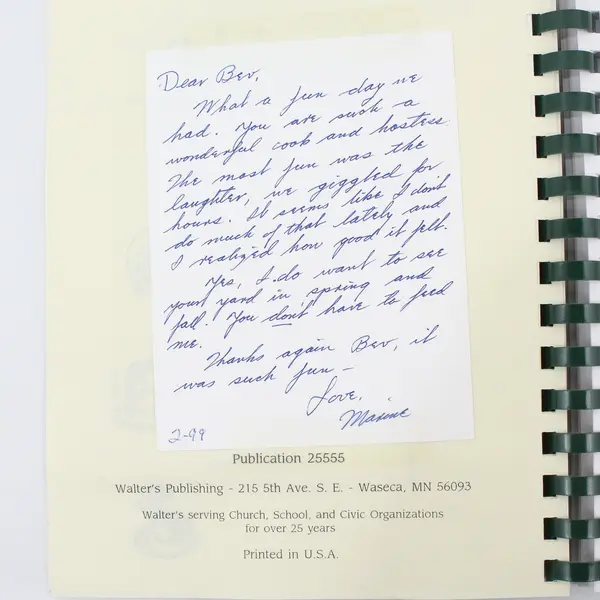 Dear Bev,
What a fun day we
had. You are such a
wonderful cook and hostess
The most fun was the
laughter, we giggled for
hours. It seems like I don't
do much of that lately and
I realized how good it felt.
Yes, I do want to see
your yard in spring and
fall. You don't have to feed
me.
Thanks again Bev, it
was such fun -
Love,
Maxine
2-99
Publication 25555
Walter's Publishing - 215 5th Ave. S. E. - Waseca, MN 56093
Walter's serving Church, School, and Civic Organizations
for over 25 years
Printed in U.S.A.